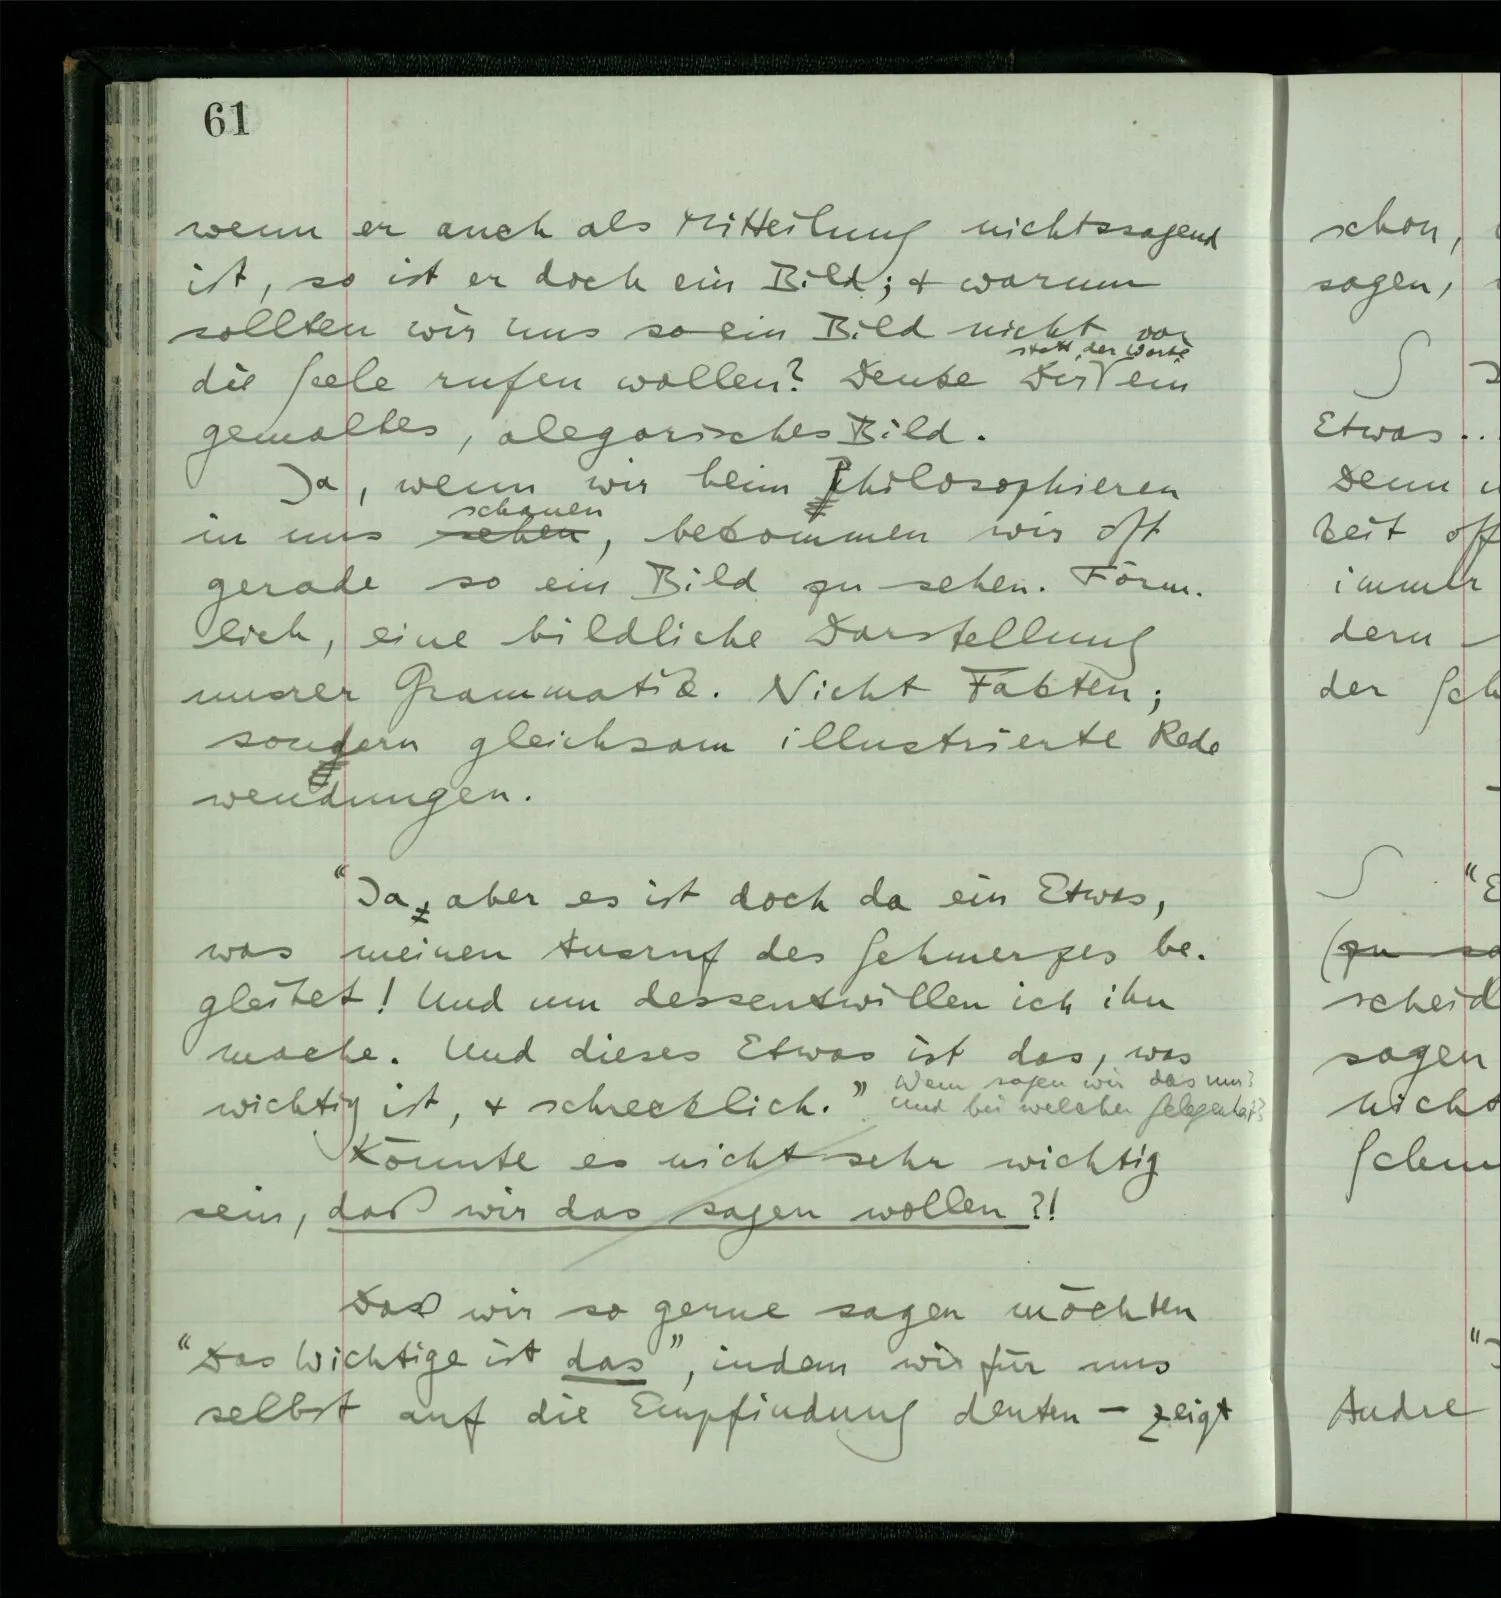 61
wenn er auch als Mitteilung nichtssagend
ist, so ist er doch ein Bild; & warum
sollten wir uns so ein Bild nicht vor
statt der Worte
die Seele rufen wollen? Denke Dir ein
gemaltes, alegorisches Bild.
Ja, wenn wir beim Philosophieren
schauen
in uns sehen, bekommen wir oft
gerade so ein Bild zu sehen. Förm-
lich, eine bildliche Darstellung
unsrer Grammatik. Nicht Fakten;
sondern gleichsam illustrierte Rede
wendungen.
"Ja, aber es ist doch da ein Etwas,
was meinen Ausruf des Schmerzes be-
gleitet! Und um dessentwillen ich ihn
mache. Und dieses Etwas ist das, was
wichtig ist, & schrecklich."
Wem sagen wir das nur?
Und bei welcher Gelegenheit?
Könnte es nicht sehr wichtig
sein, daß wir das sagen wollen?!
Daß wir so gerne sagen möchten
"Das Wichtige ist das", indem wir für uns
selbst auf die Empfindung deuten – zeigt
schon,
sagen,
Etwas..
Denn
keit
immer
dern
der
"E
(zu
scheid
sagen
nicht
Schm
Andre